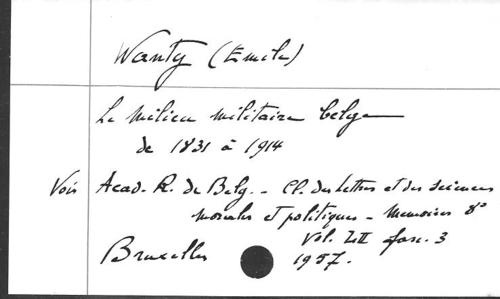 Wanty (Emile)
Le milieu militaire belge
de 1831 à 1914
Voir Acad. R. de Belg. - Cl. des lettres et des sciences
morales et politiques - Memoires 8°
Vol. LII fasc. 3
Bruxelles 1957.